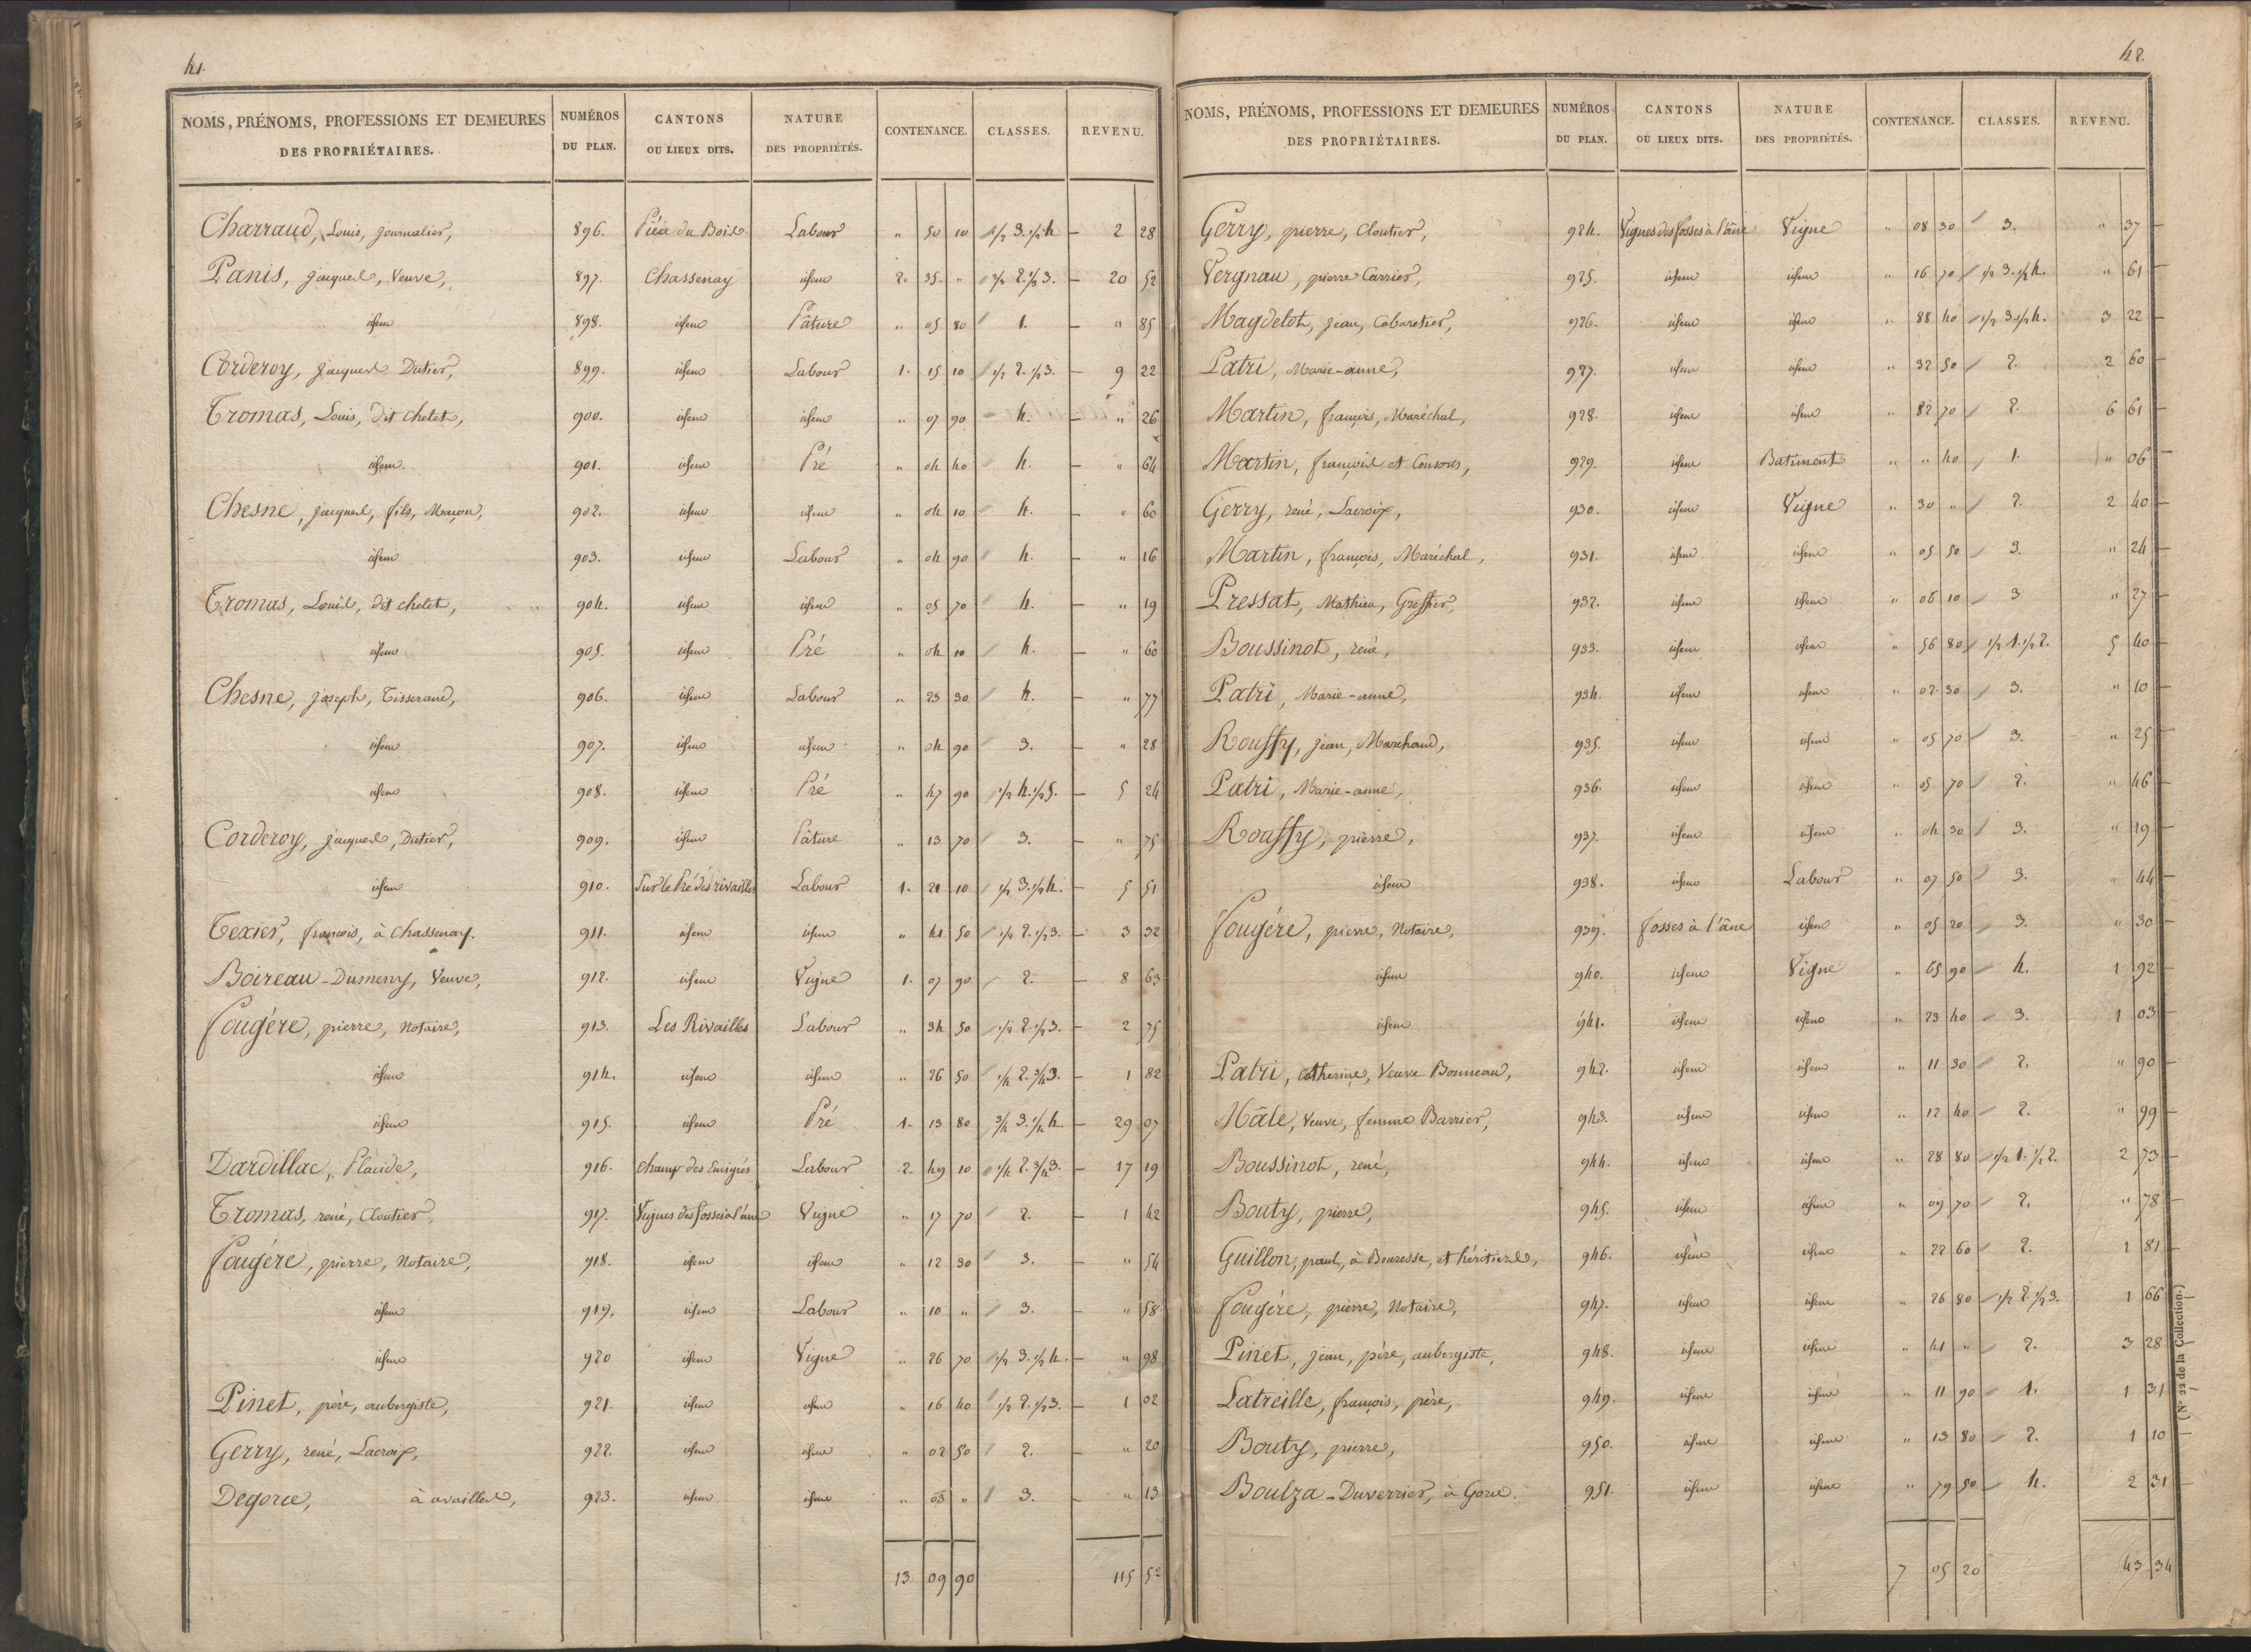 41.
NOMS, PRÉNOMS, PROFESSIONS ET DEMEURES DES PROPRIÉTAIRES. NUMÉROS DU PLAN. CANTONS OU LIEUX DITS. NATURE DES PROPRIÉTÉS. CONTENANCE. CLASSES. REVENU.
Charraud, Louis, journalier, 896. Pièce du Bois Labour " 50 10 1/2 3. 1/2 4 2 28
Panis, jacques, Veuve, 897. Chassenay idem 2. 35 " 1/2 2. 1/2 3. 20 52
idem 898. idem Pâture " 05 80 1. " 85
Corderoy, jacques Dutier, 899. idem Labour 1. 15 10 1/2 2. 1/2 3. 9 22
Tromas, Louis, dit chetet, 900. idem idem " 07 90 4. " 26
idem 901. idem Pré " 04 40 4. " 64
Chesne, jacques, fils, Maçon, 902. idem idem " 04 10 4. " 60
idem 903. idem Labour " 04 90 4. " 16
Tromas, Louis, dit chetet, 904. idem idem " 05 70 4. " 19
idem 905. idem Pré " 04 10 4. " 60
Chesne, joseph, Tisserand, 906. idem Labour " 23 30 4. " 77
idem 907. idem idem " 04 90 3. " 28
idem 908. idem Pré " 47 90 1/2 4. 1/2 5. 5 24
Corderoy, jacques, Dutier, 909. idem Pâture " 13 70 3. " 75
idem 910. Sur le Pré des rivailles Labour 1. 21 10 1/2 3. 1/2 4. 5 51
Texier, françois, à Chassenay. 911. idem idem " 41 50 1/2 2. 1/2 3. 3 32
Boireau-Dumeny, Veuve, 912. idem Vigne 1. 07 90 2. 8 63
Fougére, pierre, Notaire, 913. Les Rivailles Labour " 34 50 1/2 2. 1/2 3. 2 75
idem 914. idem idem " 26 50 1/4 2. 3/4 3. 1 82
idem 915. idem Pré 1. 13 80 3/4 3. 1/4 4. 29 07
Dardillac, Placide, 916. Champ des Emigrés Labour 2. 49 10 1/4 2. 3/4 3. 17 19
Tromas, rené, Cloutier, 917. Vignes des fosses à l'âne Vigne " 17 70 2. 1 42
Fougére, pierre, Notaire, 918. idem idem " 12 30 3. " 54
idem 919. idem Labour " 10 " 3. " 58
idem 920 idem Vigne " 26 70 1/2 3. 1/2 4. " 98
Pinet, père, aubergiste, 921. idem idem " 16 40 1/2 2. 1/2 3. 1 02
Gerry, rené, Lacroix, 922. idem idem " 02 50 2. " 20
Degorce, à availles, 923. idem idem " 03 " 3. " 13
13 09 90 115 52
42
NOMS, PRÉNOMS, PROFESSIONS ET DEMEURES DES PROPRIÉTAIRES. NUMÉROS DU PLAN. CANTONS OU LIEUX DITS. NATURE DES PROPRIÉTÉS. CONTENANCE. CLASSES. REVENU.
Gerry, pierre, Cloutier, 924. Vignes des fosses à l'âne Vigne " 08 30 3. " 37
Vergnau, pierre Carrier, 925. idem idem " 16 70 1/2 3. 1/2 4. " 61
Magdelot, jean, Cabaretier, 926. idem idem " 88 40 1/2 3. 1/2 4. 3 22
Patri, Marie-anne, 927. idem idem " 32 50 2. 2 60
Martin, françois, Maréchal, 928. idem idem " 82 70 2. 6 61
Martin, françois et Consors, 929. idem Batiment " " 40 1. " 06
Gerry, rené, Lacroix, 930. idem Vigne " 30 " 2. 2 40
Martin, françois, Maréchal, 931. idem idem " 05 50 3. " 24
Pressat, Mathieu, Greffier, 932. idem idem " 06 10 3 " 27
Boussinot, rené, 933. idem idem " 56 80 1/2 1. 1/2 2. 5 40
Patri, Marie-anne, 934. idem idem " 02 30 3. " 10
Rouffy, jean, Marchand, 935. idem idem " 05 70 3. " 25
Patri, Marie-anne, 936. idem idem " 05 70 2. " 46
Rouffy, pierre, 937. idem idem " 04 30 3. " 19
idem 938. idem Labour " 07 50 3. " 44
Fougére, pierre, Notaire, 939. fosses à l'âne idem " 05 20 3. " 30
idem 940. idem Vigne " 65 90 4. 1 92
idem 941. idem idem " 23 40 3. 1 03
Patri, Catherine, Veuve Bonneau, 942. idem idem " 11 30 2. " 90
Mâle, Veuve, femme Barrier, 943. idem idem " 12 40 2. " 99
Boussinot, rené, 944. idem idem " 28 80 1/2 1. 1/2 2. 2 73
Bouty, pierre, 945. idem idem " 09 70 2. " 78
Guillon, paul, à Bouresse, et héritiers, 946. idem idem " 22 60 2. 1 81
Fougére, pierre, Notaire, 947. idem idem " 26 80 1/2 2. 1/2 3. 1 66
Pinet, jean, père, aubergiste, 948. idem idem " 41 " 2. 3 28
Latreille, françois, père, 949. idem idem " 11 90 1. 1 31
Bouty, pierre, 950. idem idem " 13 80 2. 1 10
Boulza-Duverrier, à Gorce. 951. idem idem " 79 50 4. 2 31
7 05 20 43 34
(N° 22 de la Collection.)